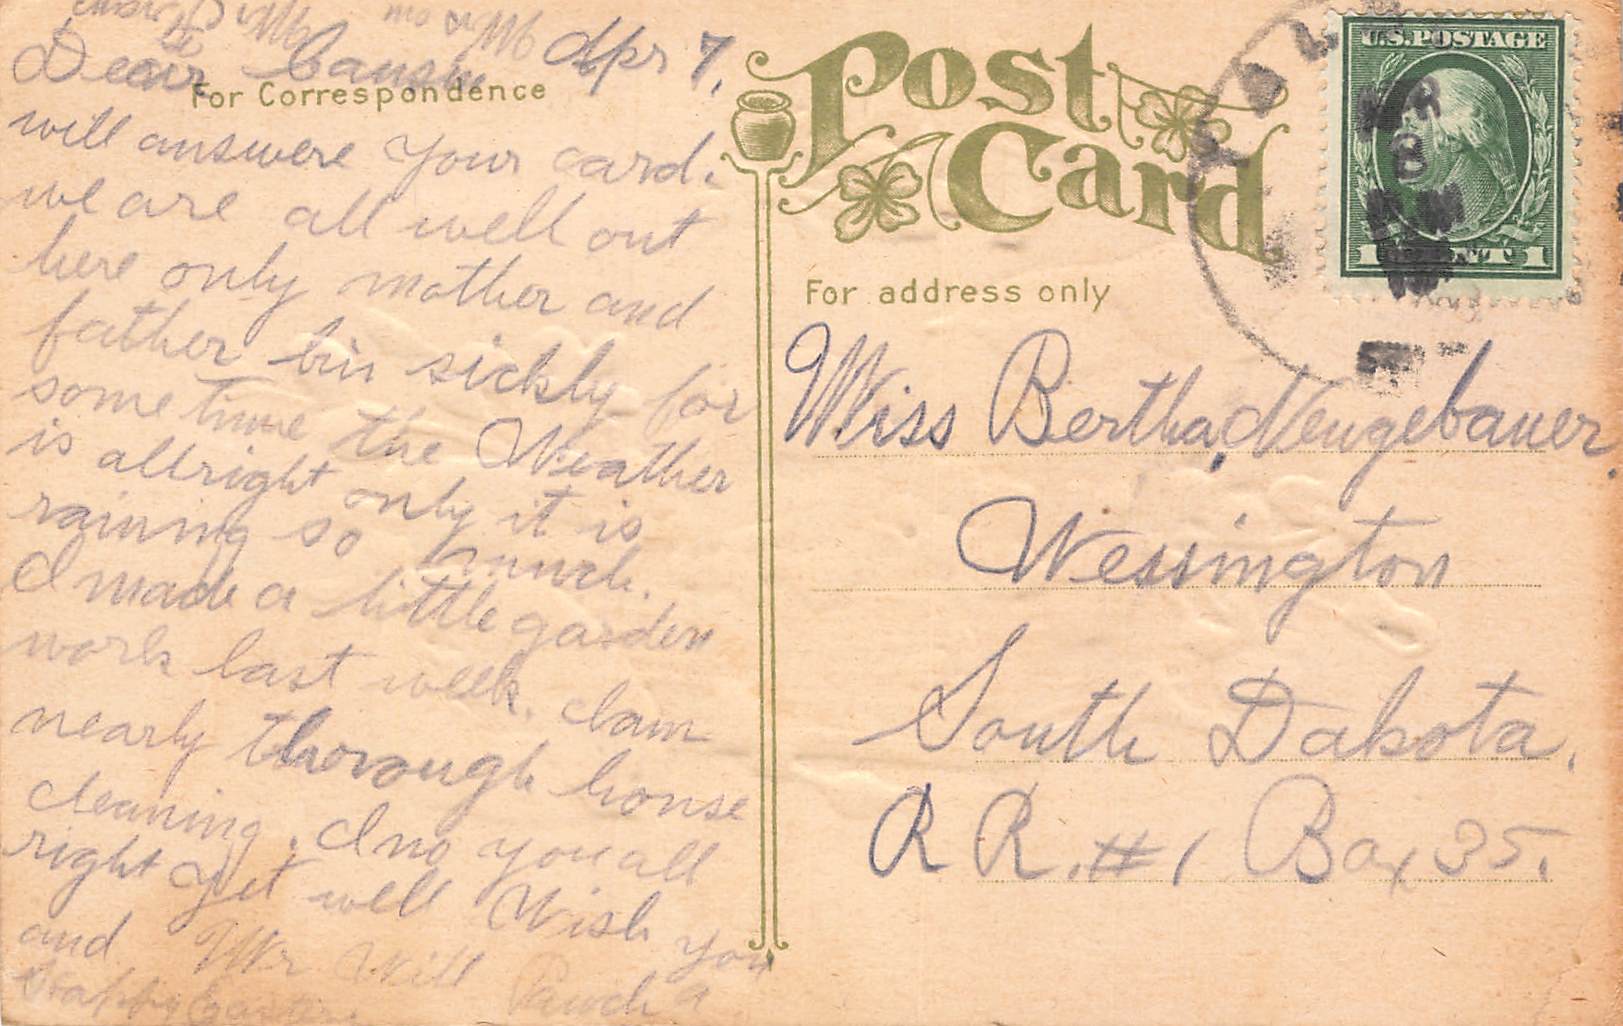 Apr 7,
Dear Cousin
For Correspondence
will answere your card.
we are all well out
here only mother and
father bin sickly for
some time the Weather
is allright only it is
raining so much.
I made a little garden
work last week. I am
nearly thorough house
cleaning. I no you all
right yet well Wish you
and Mr Will a
Happy Easter.
Post
Card
U.S. POSTAGE
1 CENT 1
For address only
Miss Bertha, Neugebauer,
Wessington
South Dakota,
R R. #1 Box 35.